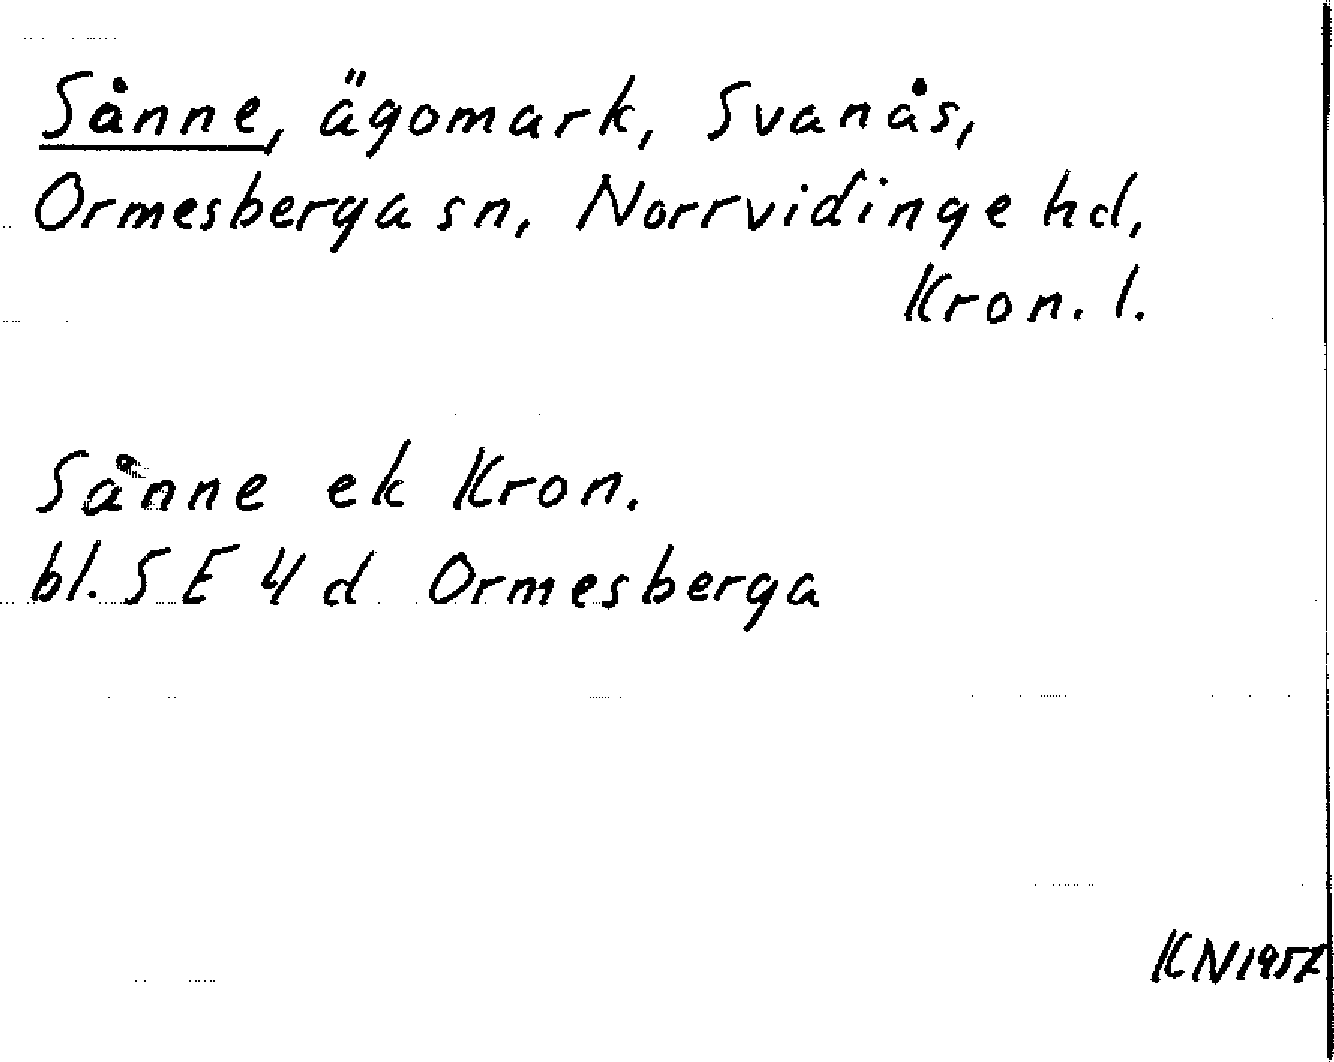 Sånne, ägomark, Svanås,
Ormesberga sn, Norrvidinge hd,
Kron. l.
Sånne ek Kron.
bl. 5 E 4 d Ormesberga
KN 1957